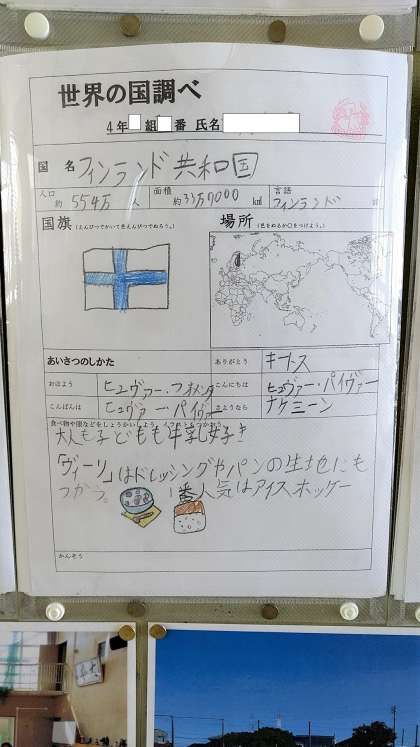 世界の国調べ
4年 組 番 氏名
国 名 フィンランド共和国
人口 約 554万 人 面積 約33万7000 km² 言語 フィンランド 語
国旗（えんぴつでかいて色えんぴつでぬろう。） 場所（色をぬるか○をつけよう。）
あいさつのしかた ありがとう キートス
おはよう ヒュヴァー・フオメンタ こんにちは ヒュヴァー・パイヴァー
こんばんは ヒュヴァー・パイヴァー さようなら ナケミーン
大人も子どもも牛乳好き
「ヴィーリ」はドレッシングやパンの生地にも
つかう。 1番人気はアイスホッケー
かんそう